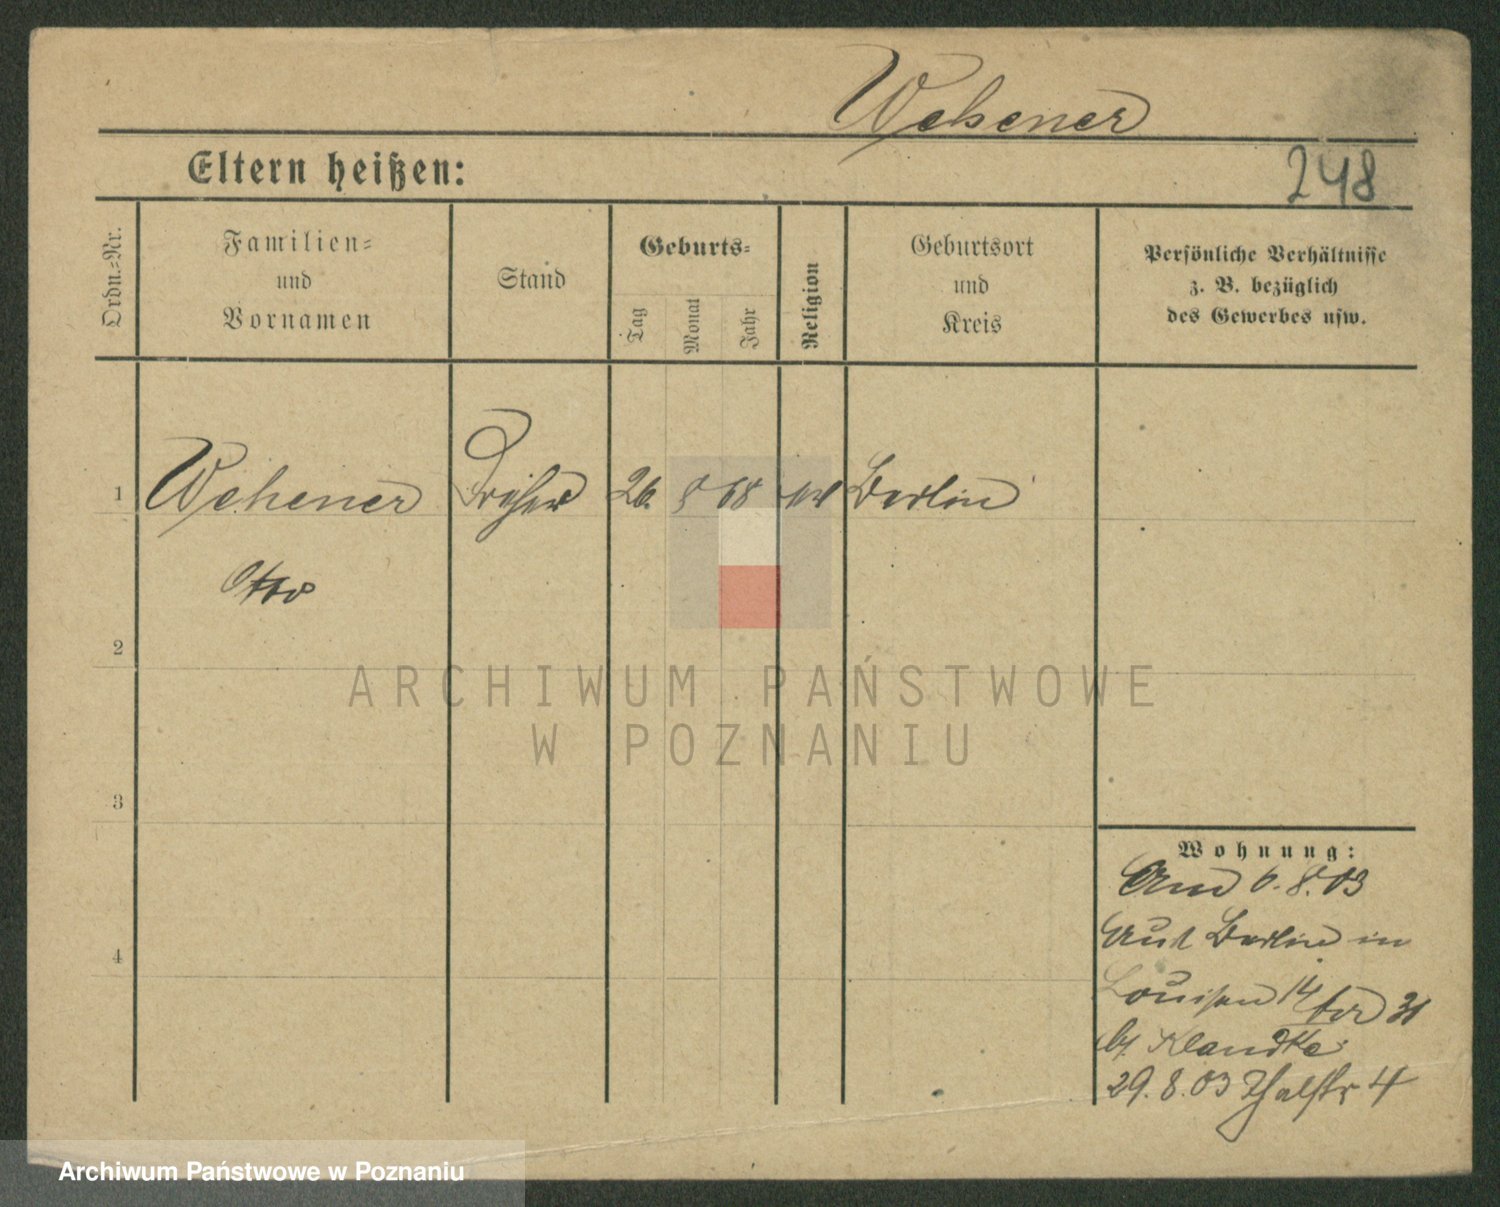 Wehener
Eltern heißen:
248
Ordn.-Nr.
Familien-
und
Vornamen
Stand
Geburts-
Tag
Monat
Jahr
Religion
Geburtsort
und
Kreis
Persönliche Verhältnisse
z. B. bezüglich
des Gewerbes usw.
1
Wehener
26. 8 68
Berlin
Otto
2
ARCHIWUM PAŃSTWOWE
W POZNANIU
3
Wohnung:
6. 8. 03
Aus Berlin in
Louisen 14 31
b/ Klandke
29. 8. 03 Thalstr 4
4
Archiwum Państwowe w Poznaniu